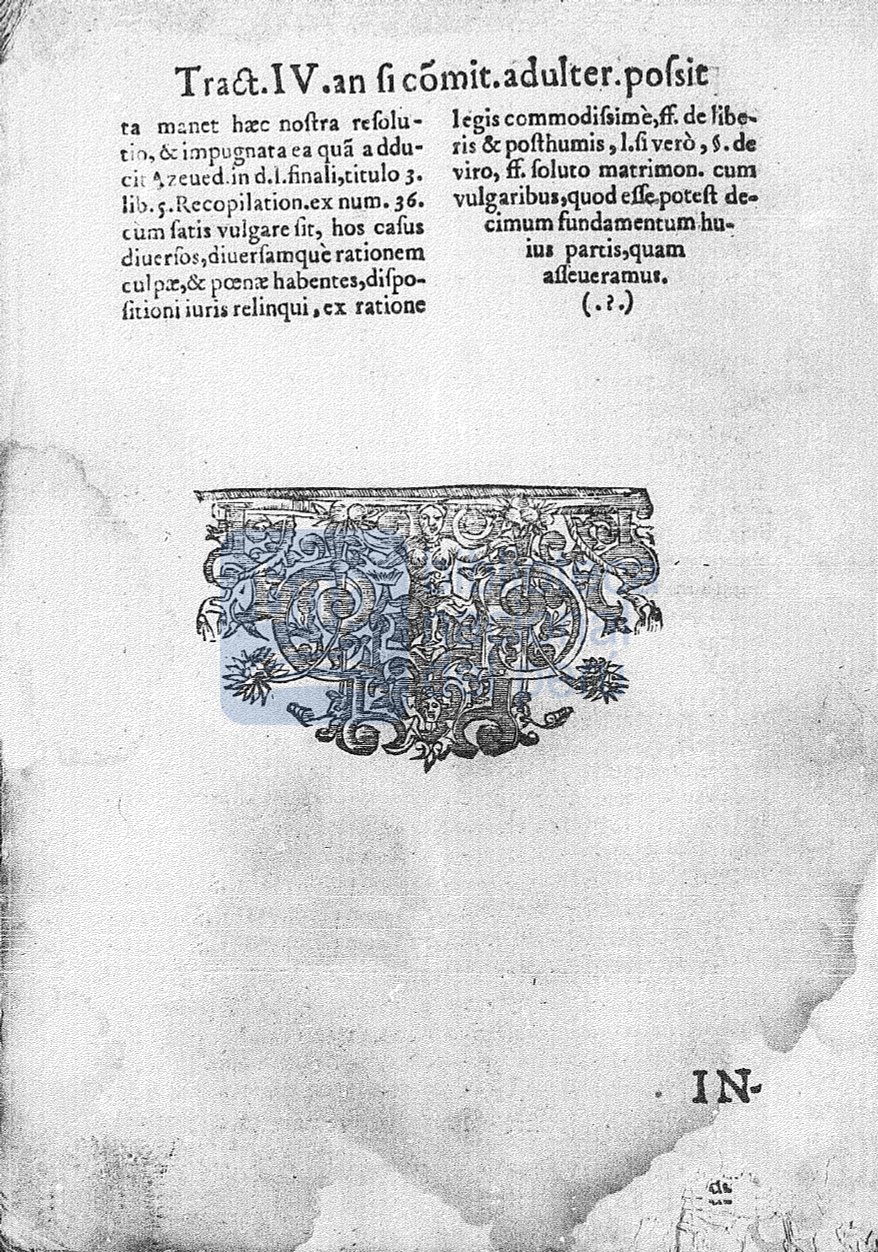 Tract.IV.an ſi cõmit.adulter.poſsit
ta manet hæc noſtra reſolu-
tio, & impugnata ea quã addu-
cit Azeued.in d.l.finali,titulo 3.
lib.5.Recopilation.ex num. 36.
cùm ſatis vulgare ſit, hos caſus
diuerſos,diuerſamquè rationem
culpæ,& pœnæ habentes,diſpo-
ſitioni iuris relinqui, ex ratione
legis commodiſsimè,ff. de libe-
ris & poſthumis, l.ſi verò, §. de
viro, ff. ſoluto matrimon. cum
vulgaribus,quod eſſe poteſt de-
cimum fundamentum hu-
ius partis,quam
aſſeueramus.
(.?.)
IN-